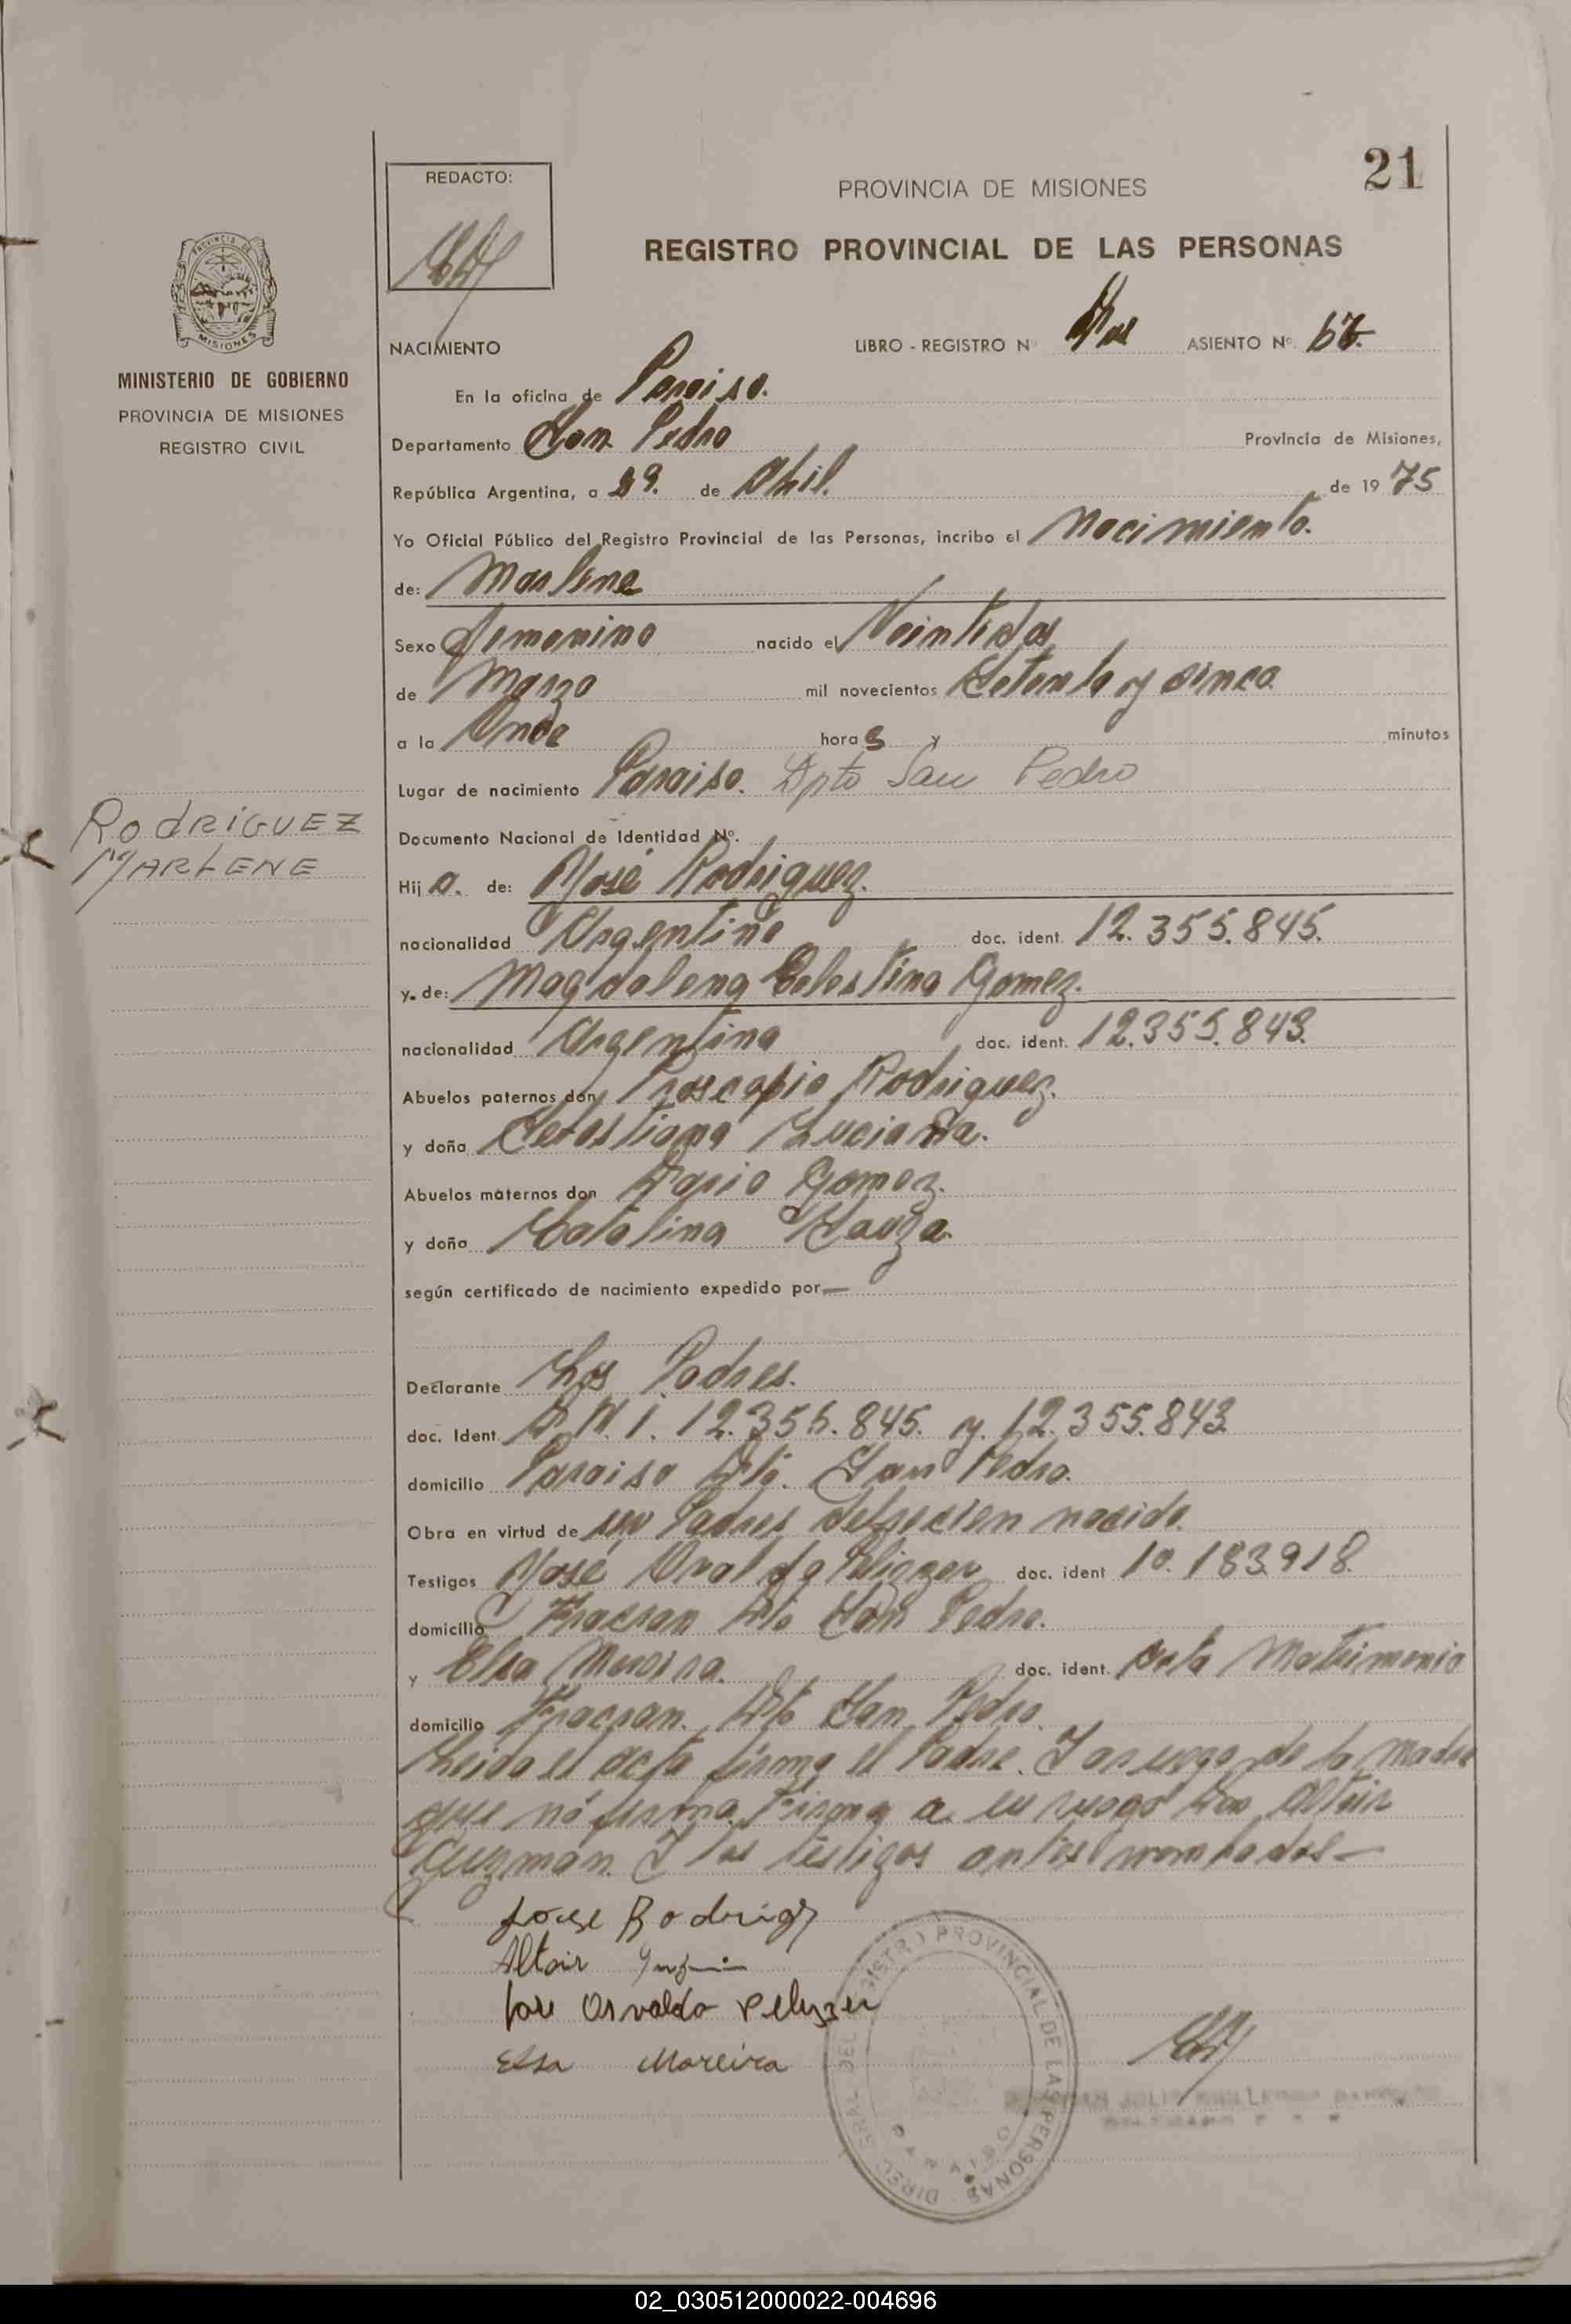 21
REDACTO:
PROVINCIA DE MISIONES
REGISTRO PROVINCIAL DE LAS PERSONAS
MINISTERIO DE GOBIERNO
PROVINCIA DE MISIONES
REGISTRO CIVIL
NACIMIENTO LIBRO - REGISTRO Nº Dos ASIENTO Nº.
En la oficina de Paraiso.
Departamento San Pedro Provincia de Misiones,
República Argentina, a 29. de Abril. de 19 75
Yo Oficial Público del Registro Provincial de las Personas, incribo el Nacimiento.
de: Marlene
Sexo femenino nacido el Veintidos
de Marzo mil novecientos Setenta y sinco
a la Once horas y minutos
Lugar de nacimiento Paraiso. Dpto San Pedro
RODRIGUEZ
MARLENE
Documento Nacional de Identidad Nº.
Hij a. de: José Rodriguez.
nacionalidad Argentino doc. ident. 12.355.845.
y de: Magdalena Celestina Gomez.
nacionalidad Argentina doc. ident. 12.355.843.
Abuelos paternos don Proscopio Rodriguez.
y doña Sebastiana Luciana.
Abuelos maternos don Dario Gomez.
y doña Catalina Kauza.
según certificado de nacimiento expedido por —
Declarante Los Padres.
doc. Ident. D.N.I. 12.355.845. y. 12.355.843
domicilio Paraiso Dto. San Pedro.
Obra en virtud de ser Padres del recien nacido.
Testigos José Osvaldo Pelizzer doc. ident 10.183.918.
domicilio Fracran Dto San Pedro.
y Elsa Moreira. doc. ident. acta Matrimonio
domicilio Fracran. Dto San Pedro.
Leida el acta firma el Padre. I a ruego de la Madre
que nó firma. Firma a su ruego Don Altair
Guzmán. I los testigos antes nombrados —
Jose Rodrigz
Altair
Jose Osvaldo Pelizzer
Elsa Moreira
DIREC. GRAL DEL REGISTRO PROVINCIAL DE LAS PERSONAS
PARAISO
02_030512000022-004696